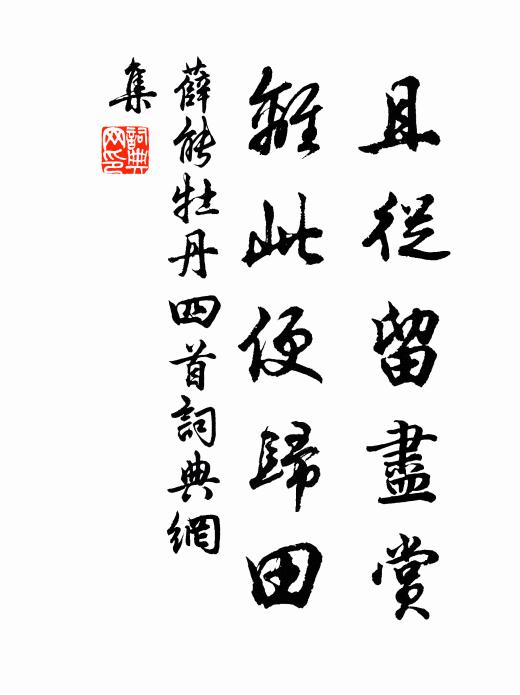 且從留盡賞
離此便歸田
薛能牡丹四首詞典網
集
詞典網印